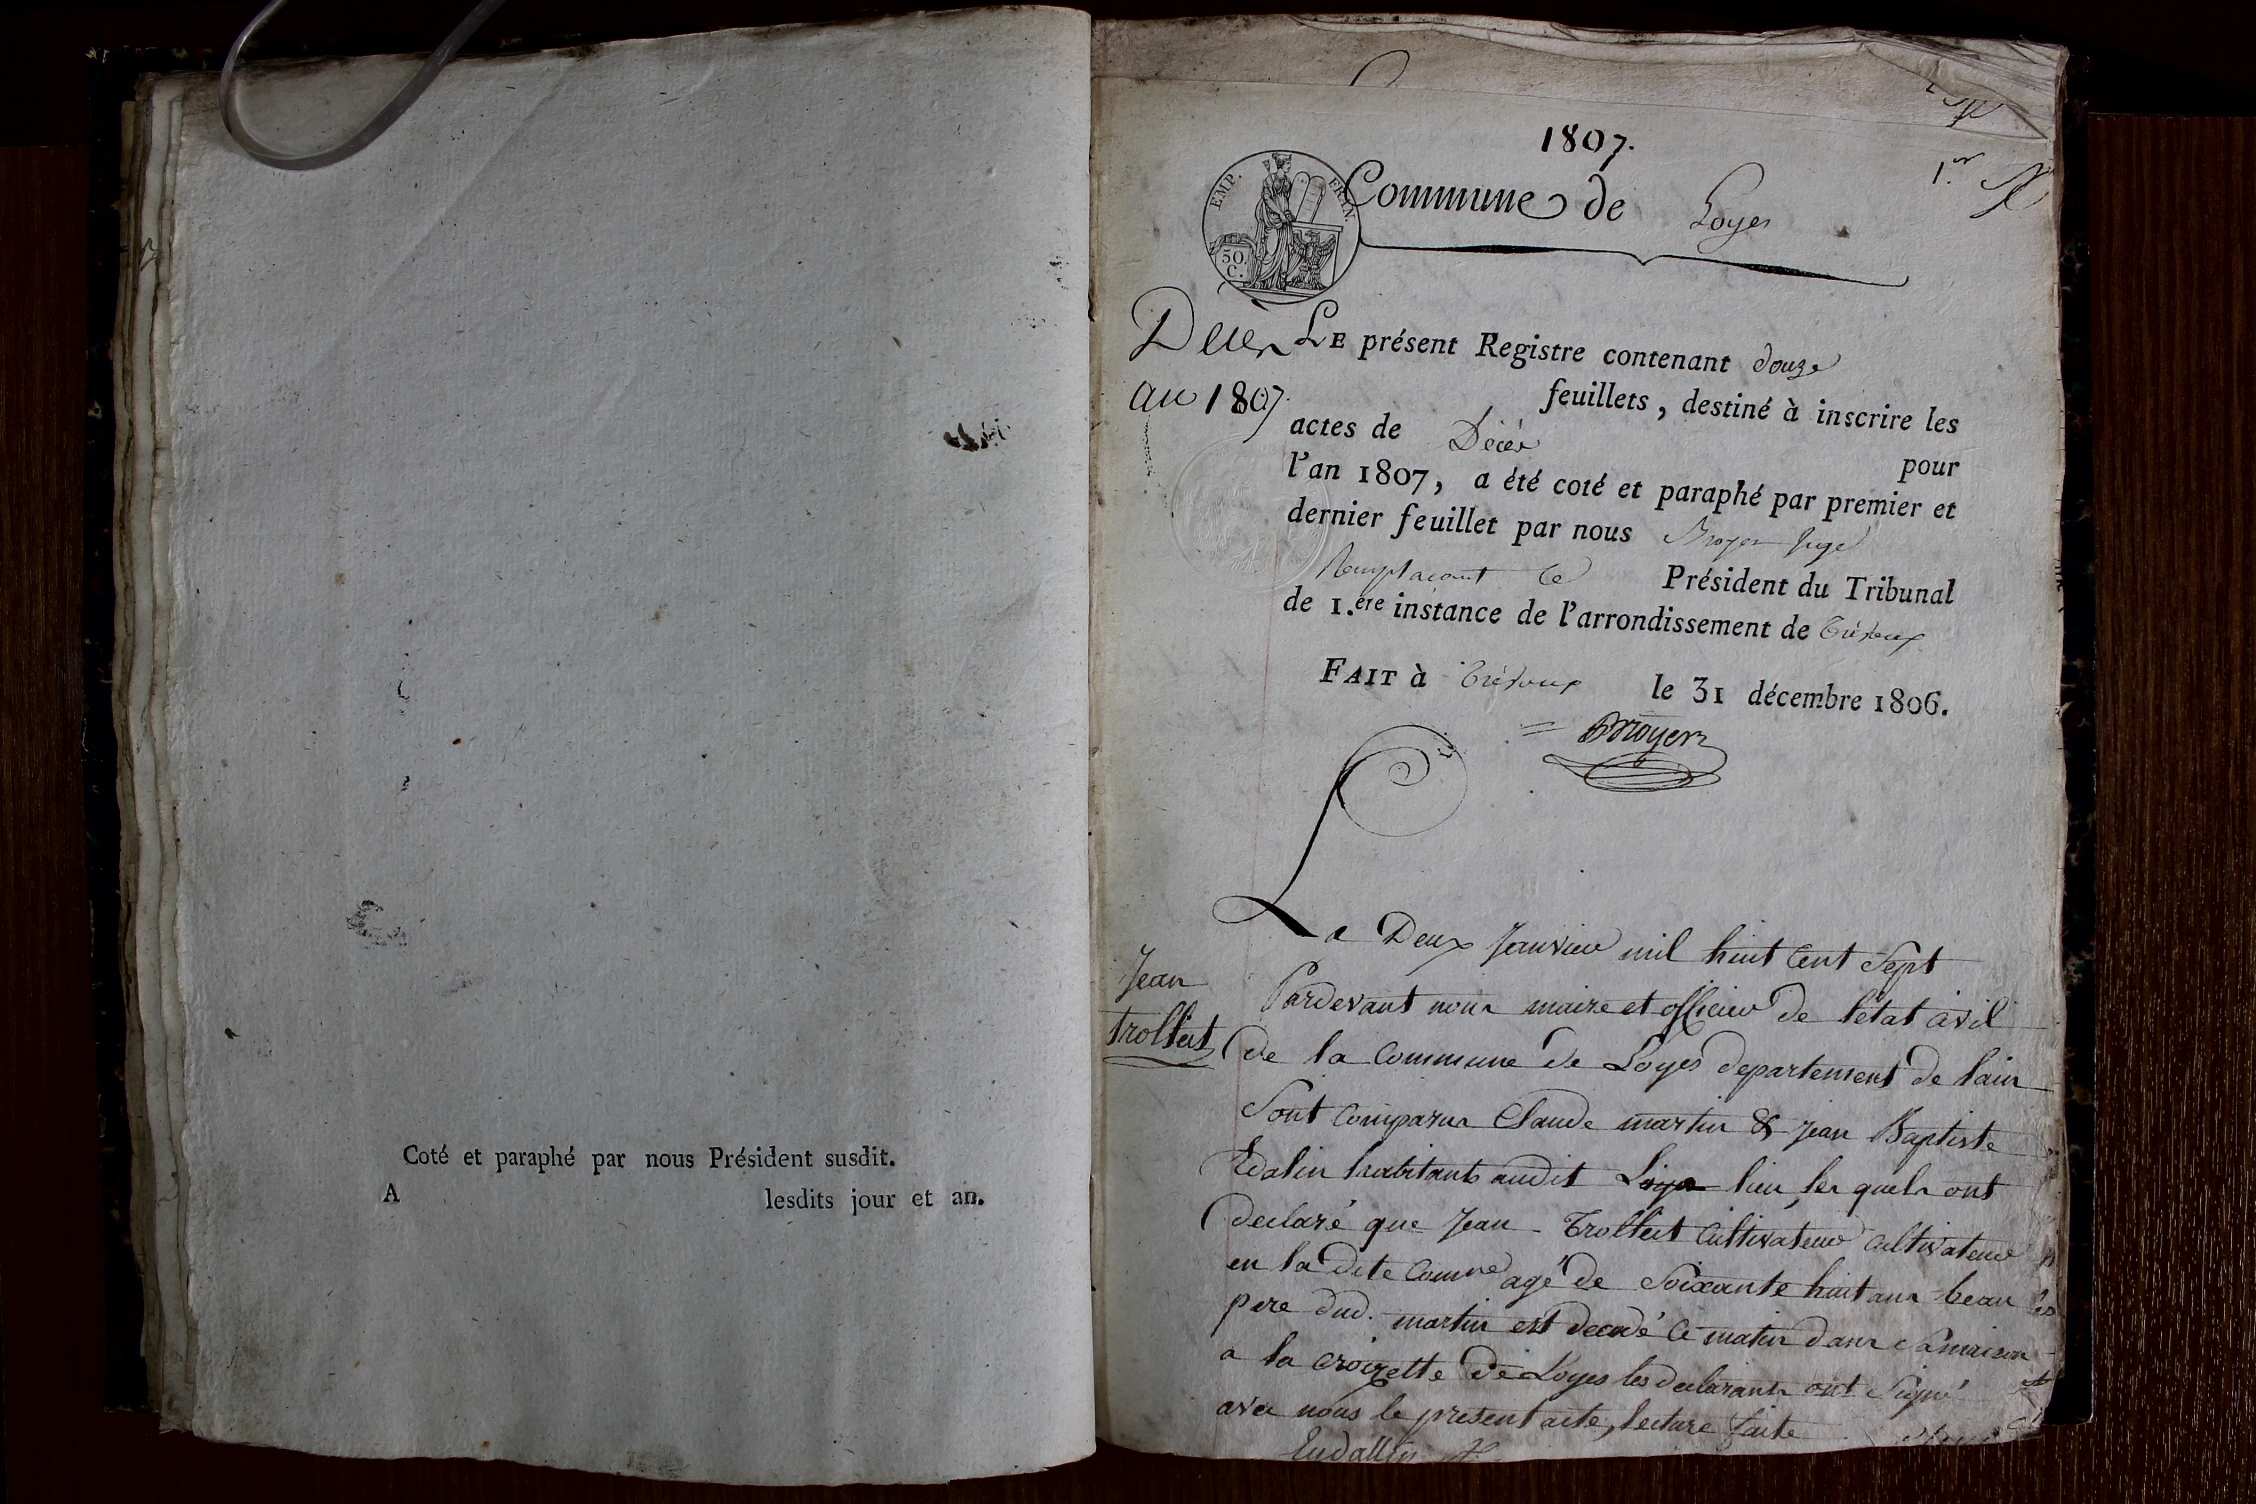 Coté et paraphé par nous Président susdit.
A lesdits jour et an.
1807.
1.er
EMP. FRAN.
50 C.
Commune de Loyes
Décès
an 1807
LE présent Registre contenant douze
feuillets, destiné à inscrire les
actes de Décès pour
l'an 1807, a été coté et paraphé par premier et
dernier feuillet par nous Broyer Juge
Remplacant le Président du Tribunal
de 1.ere instance de l'arrondissement de Trévoux
FAIT à Trévoux le 31 décembre 1806.
Broyer
Jean
trolliet
Le Deux Janvier mil huit Cent Sept
Pardevant nous maire et officier de l'état civil
de la Commune de Loyes departement de lain
Sont comparus Claude martin & Jean Baptiste
habitants audit Loyes lieu, les quels ont
declaré que Jean Trolliet Cultivateur cultivateur
en la dite Comne agé de Soixante huit ans beau
pere dud. martin est decedé ce matin dans Sa maison
a la croizette de Loyes les declarants ont Signé
avec nous le present acte, lecture faite